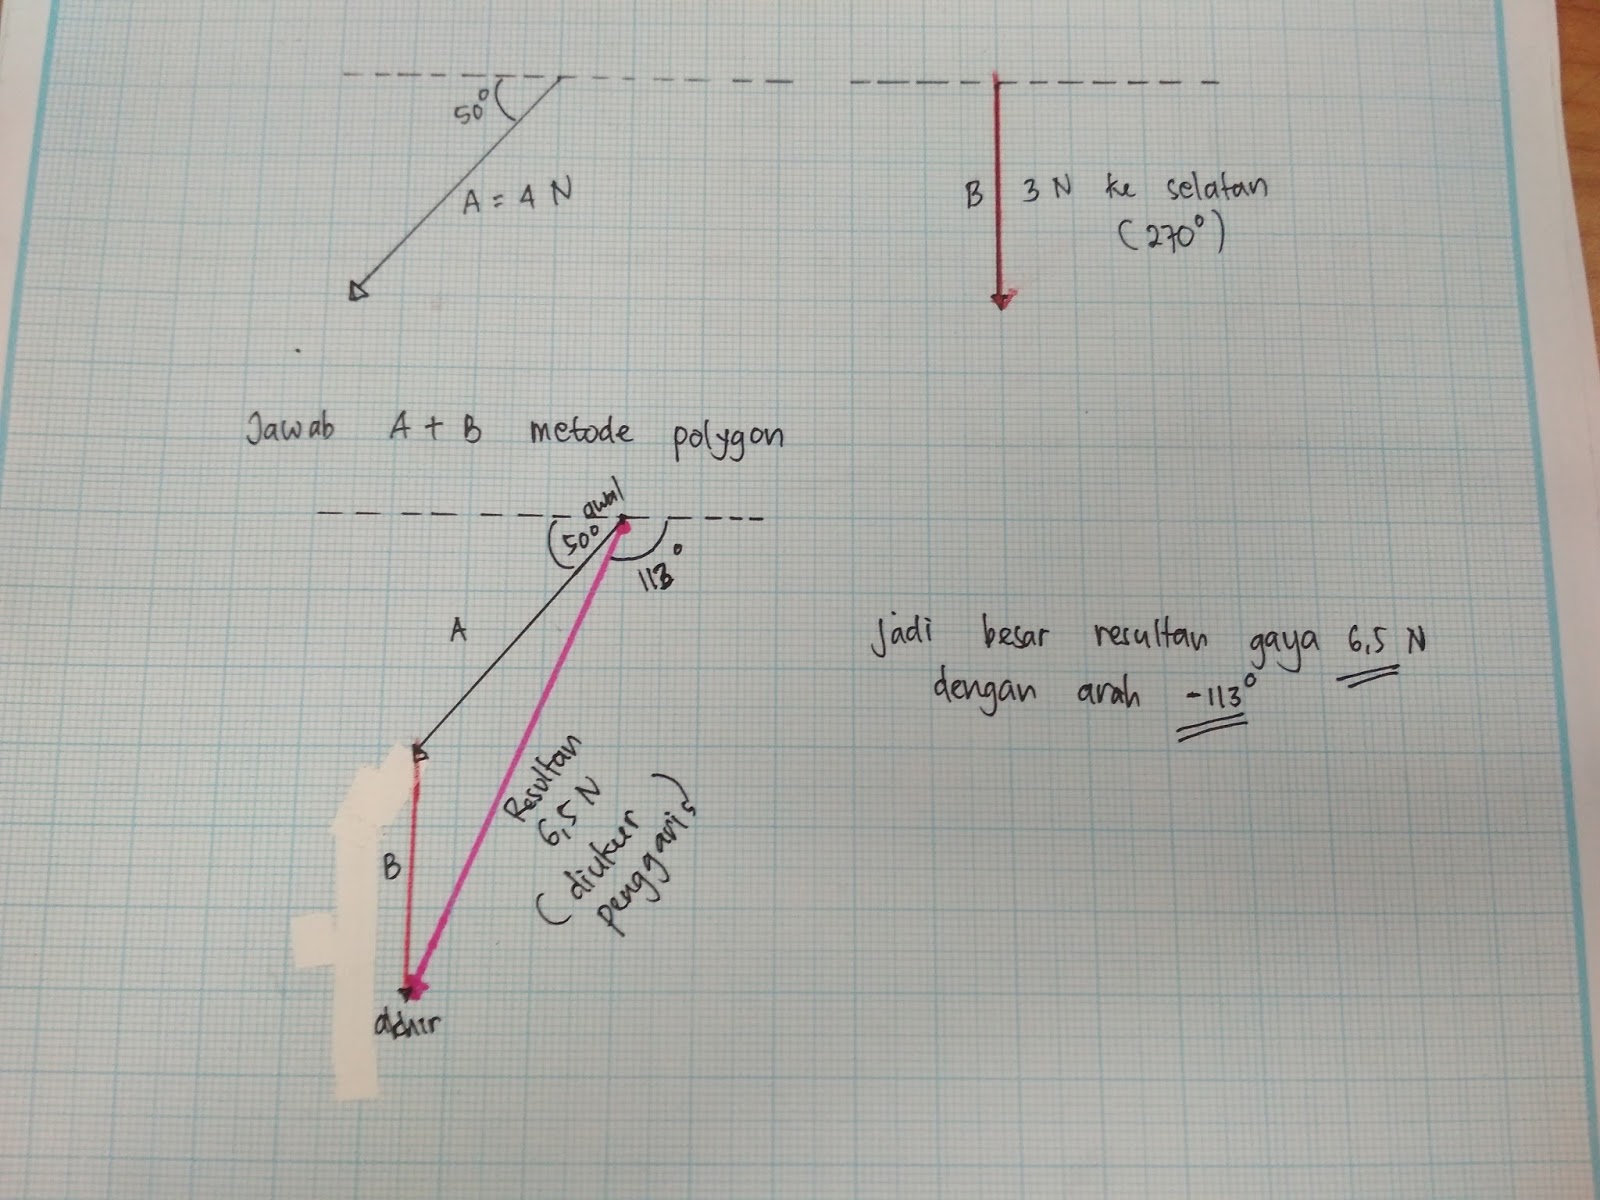 50°
A = 4 N
B 3 N ke selatan
(270°)
Jawab A + B metode polygon
awal
50°
113°
A
Jadi besar resultan gaya 6,5 N
dengan arah -113°
Resultan
6,5 N
(diukur
penggaris)
B
akhir